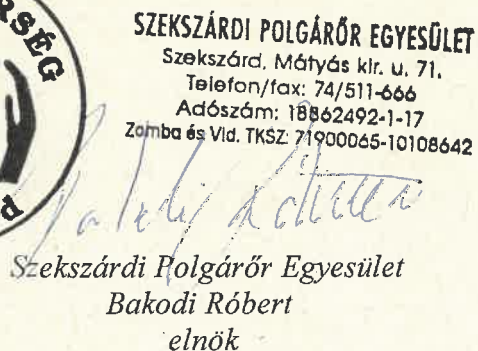 RSÉG
P
SZEKSZÁRDI POLGÁRŐR EGYESÜLET
Szekszárd, Mátyás kir. u. 71.
Telefon/fax: 74/511-666
Adószám: 18862492-1-17
Zomba és Vid. TKSZ: 71900065-10108642
Szekszárdi Polgárőr Egyesület
Bakodi Róbert
elnök